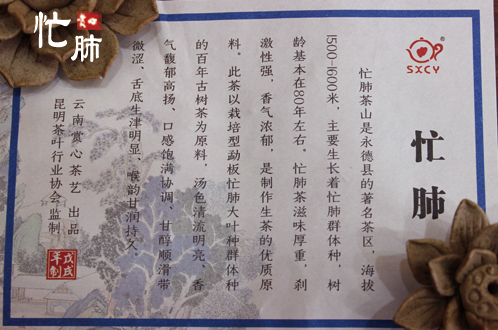 SXCY
®
忙肺
忙肺茶山是永德县的著名茶区，海拔
1500-1600米，主要生长着忙肺群体种，树
龄基本在80年左右。忙肺茶滋味厚重，刹
激性强，香气浓郁，是制作生茶的优质原
料。此茶以栽培型勐板忙肺大叶种群体种
的百年古树茶为原料，汤色清流明亮、香
气馥郁高扬、口感饱满协调、甘醇顺滑带
微涩、舌底生津明显、喉韵甘润持久。
云南赏心茶艺 出品
昆明茶叶行业协会 监制
戊戌年制
忙肺